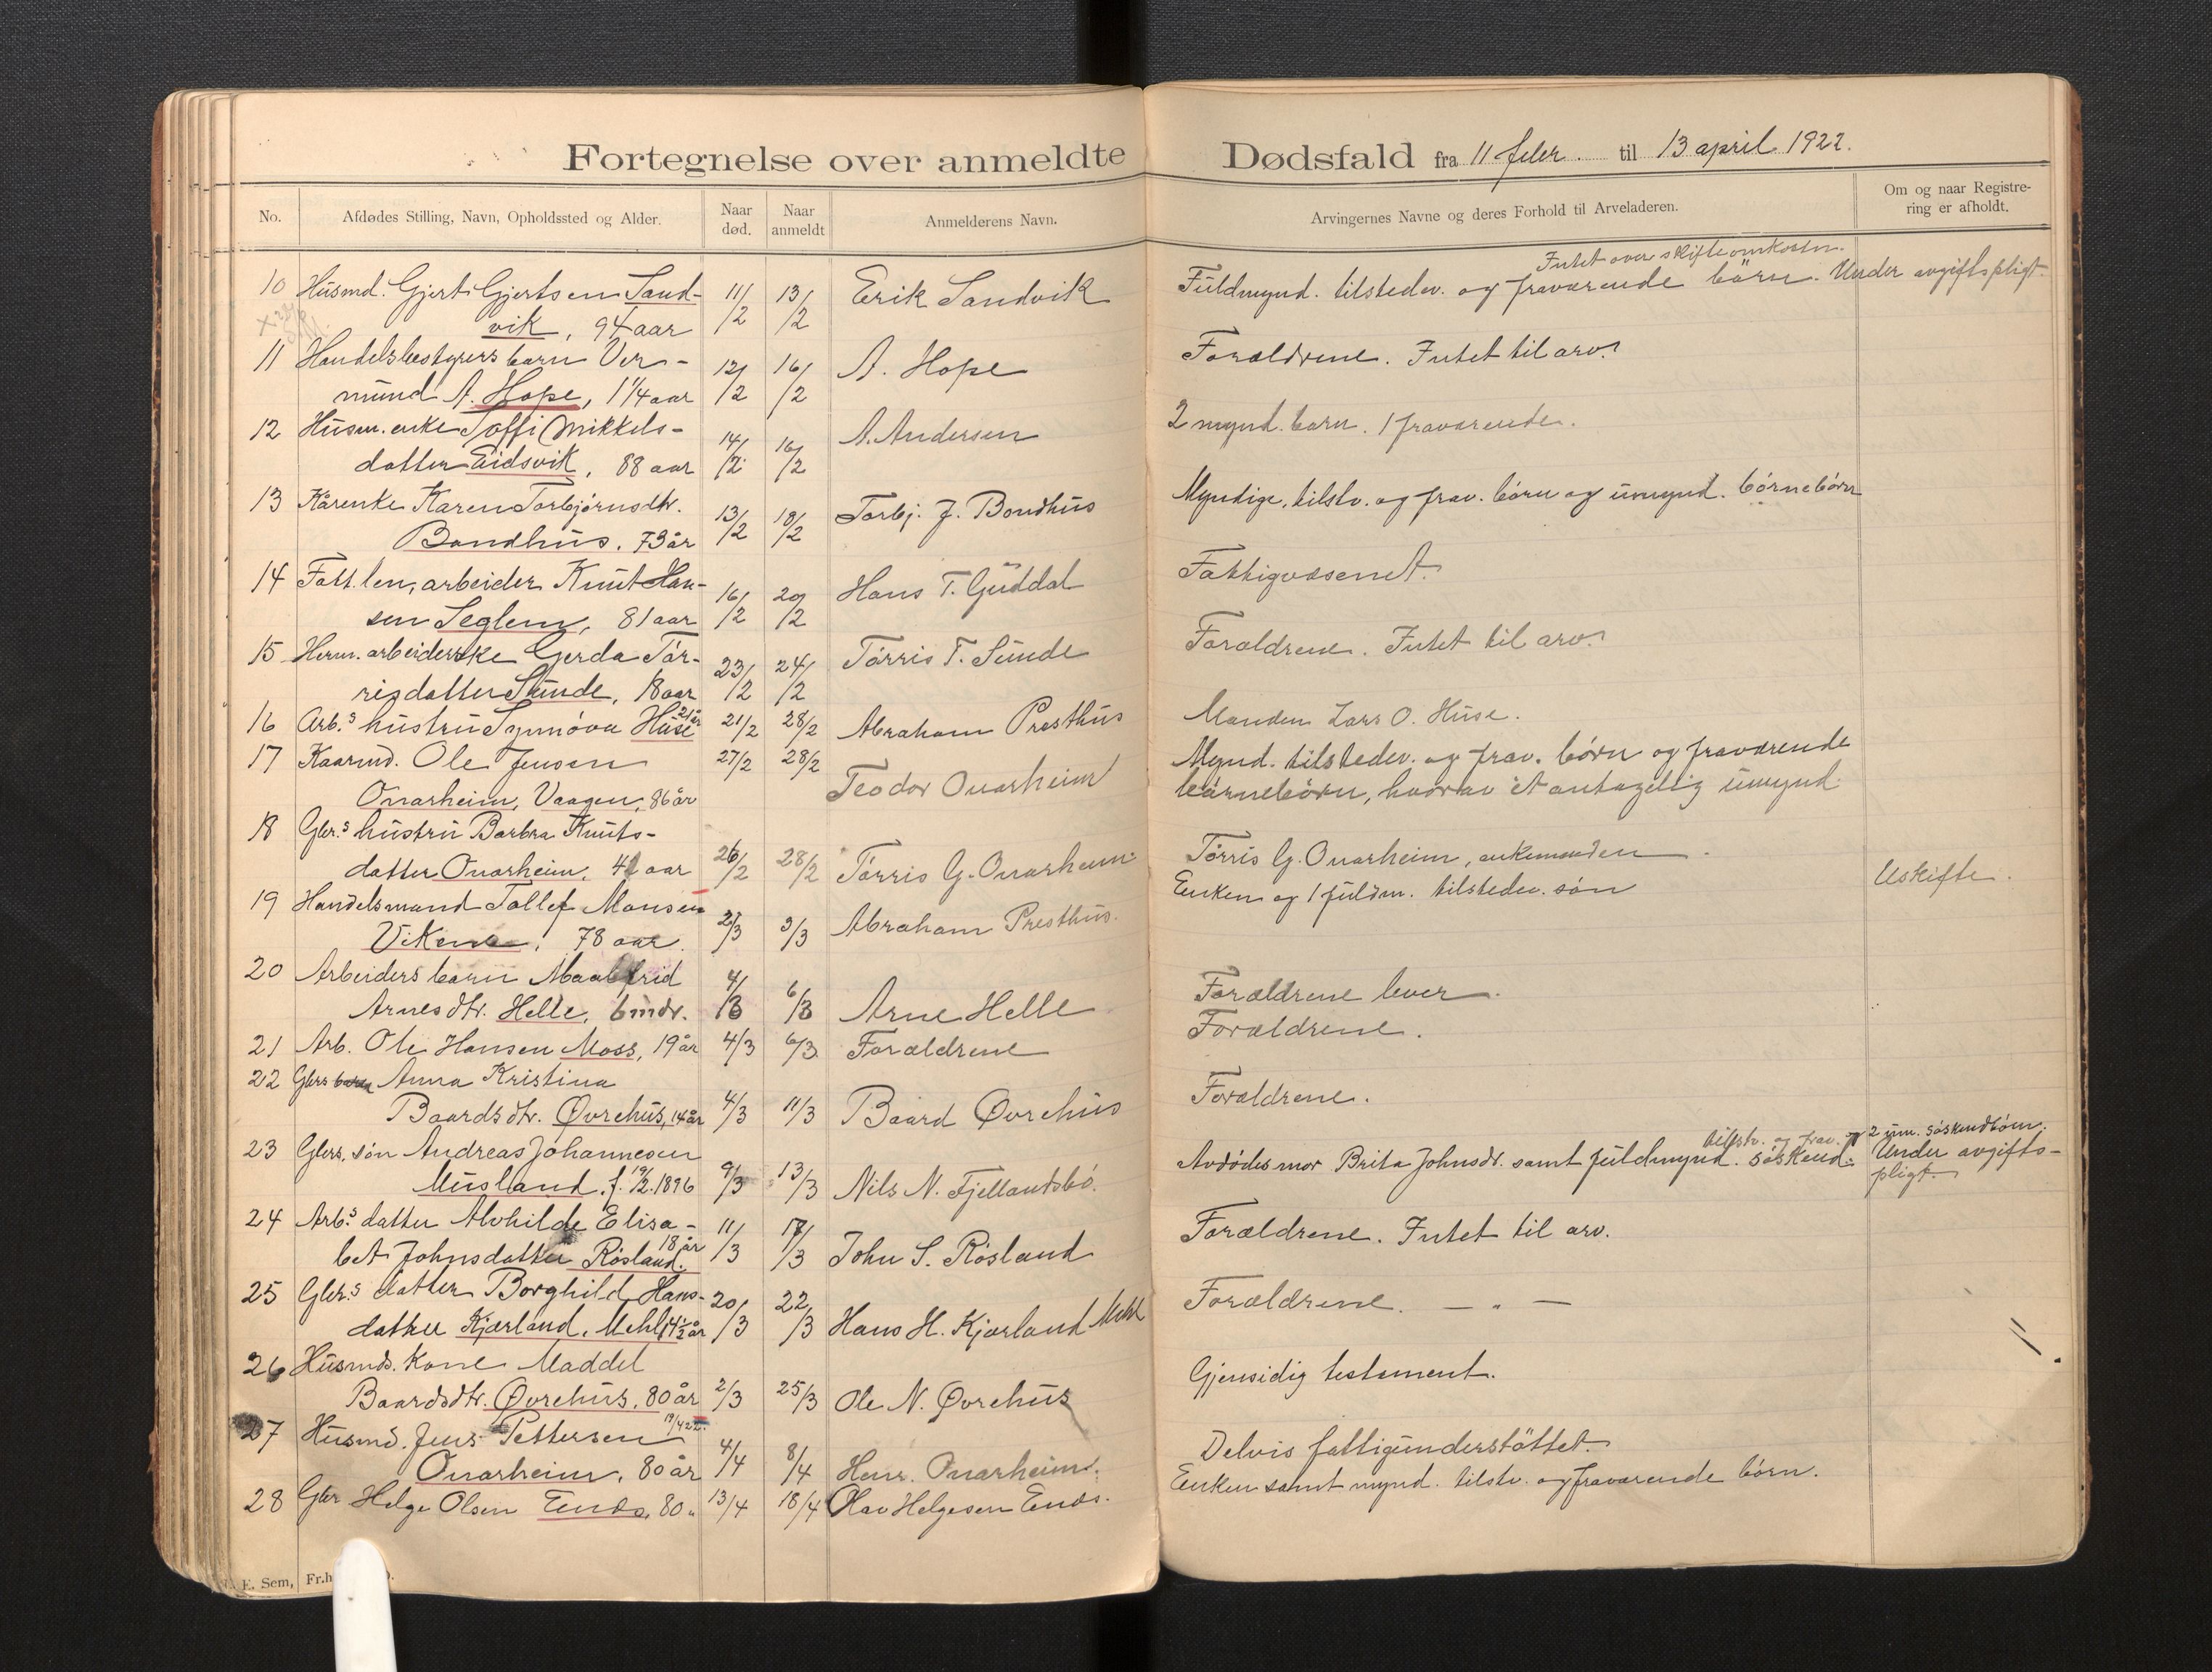 Fortegnelse over anmeldte Dødsfald fra 11 febr. til 13 april 1922.
No. Afdødes Stilling, Navn, Opholdssted og Alder. Naar død. Naar anmeldt Anmelderens Navn. Arvingernes Navne og deres Forhold til Arveladeren. Om og naar Registrering er afholdt.
Intet over skifteomkostn.
10 Husmd. Gjert Gjertsen Sand- 11/2 13/2 Erik Sandvik Fuldmynd. tilstedev. og fraværende børn. Under avgiftspligt.
vik, 94 aar
11 Handelsbestyrers barn Ver- 12/2 16/2 A. Hope Forældrene. Intet til arv.
mund A. Hope, 1 1/4 aar
12 Husm. enke Toffi Mikkels- 14/2 16/2 A. Andersen 2 mynd. barn. 1 fraværende.
datter Eidsvik, 88 aar
13 Kårenke Karen Torbjørnsdtr. 13/2 18/2 Torbj. J. Bondhus Myndige, tilstv. og frav. børn og umynd. børnebørn
Bondhus, 73 år
14 Fatt.lem, arbeider Knut Han- 16/2 20/2 Hans T. Guddal Fattigvæsenet.
sen Seglem, 81 aar
15 Herm. arbeiderske Gjerda Tør- 23/2 24/2 Tørris T. Sunde Forældrene. Intet til arv.
risdatter Sunde, 18 aar
16 Arb.s hustru Synnøva Huse 21 år 21/2 28/2 Abraham Presthus Manden Lars O. Huse.
17 Kaarmd. Ole Jensen 27/2 28/2 Teodor Onarheim Mynd. tilstedev. og frav. børn og fraværende
Onarheim, Vaagen, 86 år børnebørn, hvorav et antagelig umynd.
18 Gbr.s hustru Barbra Knuts-
datter Onarheim, 41 aar 26/2 28/2 Tørris G. Onarheim Tørris G. Onarheim, enkemanden.
19 Handelsmand Tollef Monsen 2/3 3/3 Abraham Presthus. Enken og 1 fuldm. tilstedev. søn Uskifte.
Vikene, 78 aar.
20 Arbeiders barn Maalfrid 4/3 6/3 Arne Helle Forældrene lever.
Arnesdtr. Helle, 6 mdr.
21 Arb. Ole Hansen Moss, 19 år 4/3 6/3 Forældrene Forældrene.
22 Gbrs barn Anna Kristina
Baardsdtr. Øvrehus, 14 år 4/3 11/3 Baard Øvrehus Forældrene.
tilstv. og frav. og 2 um. søskendbørn.
23 Gbrs. søn Andreas Johannesen 9/3 13/3 Nils N. Fjellandsbø. Avdødes mor Brita Johnsdr. samt fuldmynd. søskend. Under avgifts-
Musland, f. 19/2. 1896 pligt.
24 Arb.s datter Alvhilde Elisa- 11/3 17/3 John S. Røsland Forældrene. Intet til arv.
bet Johnsdatter Røsland. 18 år
25 Gbr.s datter Borghild Hans- 20/3 22/3 Hans H. Kjærland Mehl Forældrene. — „ —
datter Kjærland, Mehl, 14 1/2 år
26 Husmds. kone Maddel
Baardsdtr. Øvrehus, 80 år 2/3 25/3 Ole N. Øvrehus Gjensidig testament.
27 Husmd. Jens Pettersen 19/4 22. 4/4 8/4 Henr. Onarheim. Delvis fattigunderstøttet.
Onarheim, 80 år
28 Gbr Helge Olsen Enæs, 80 „ 13/4 18/4 Olav Helgesen Enæs. Enken samt mynd. tilstv. og fraværende børn.
E. Sem, Fr.h